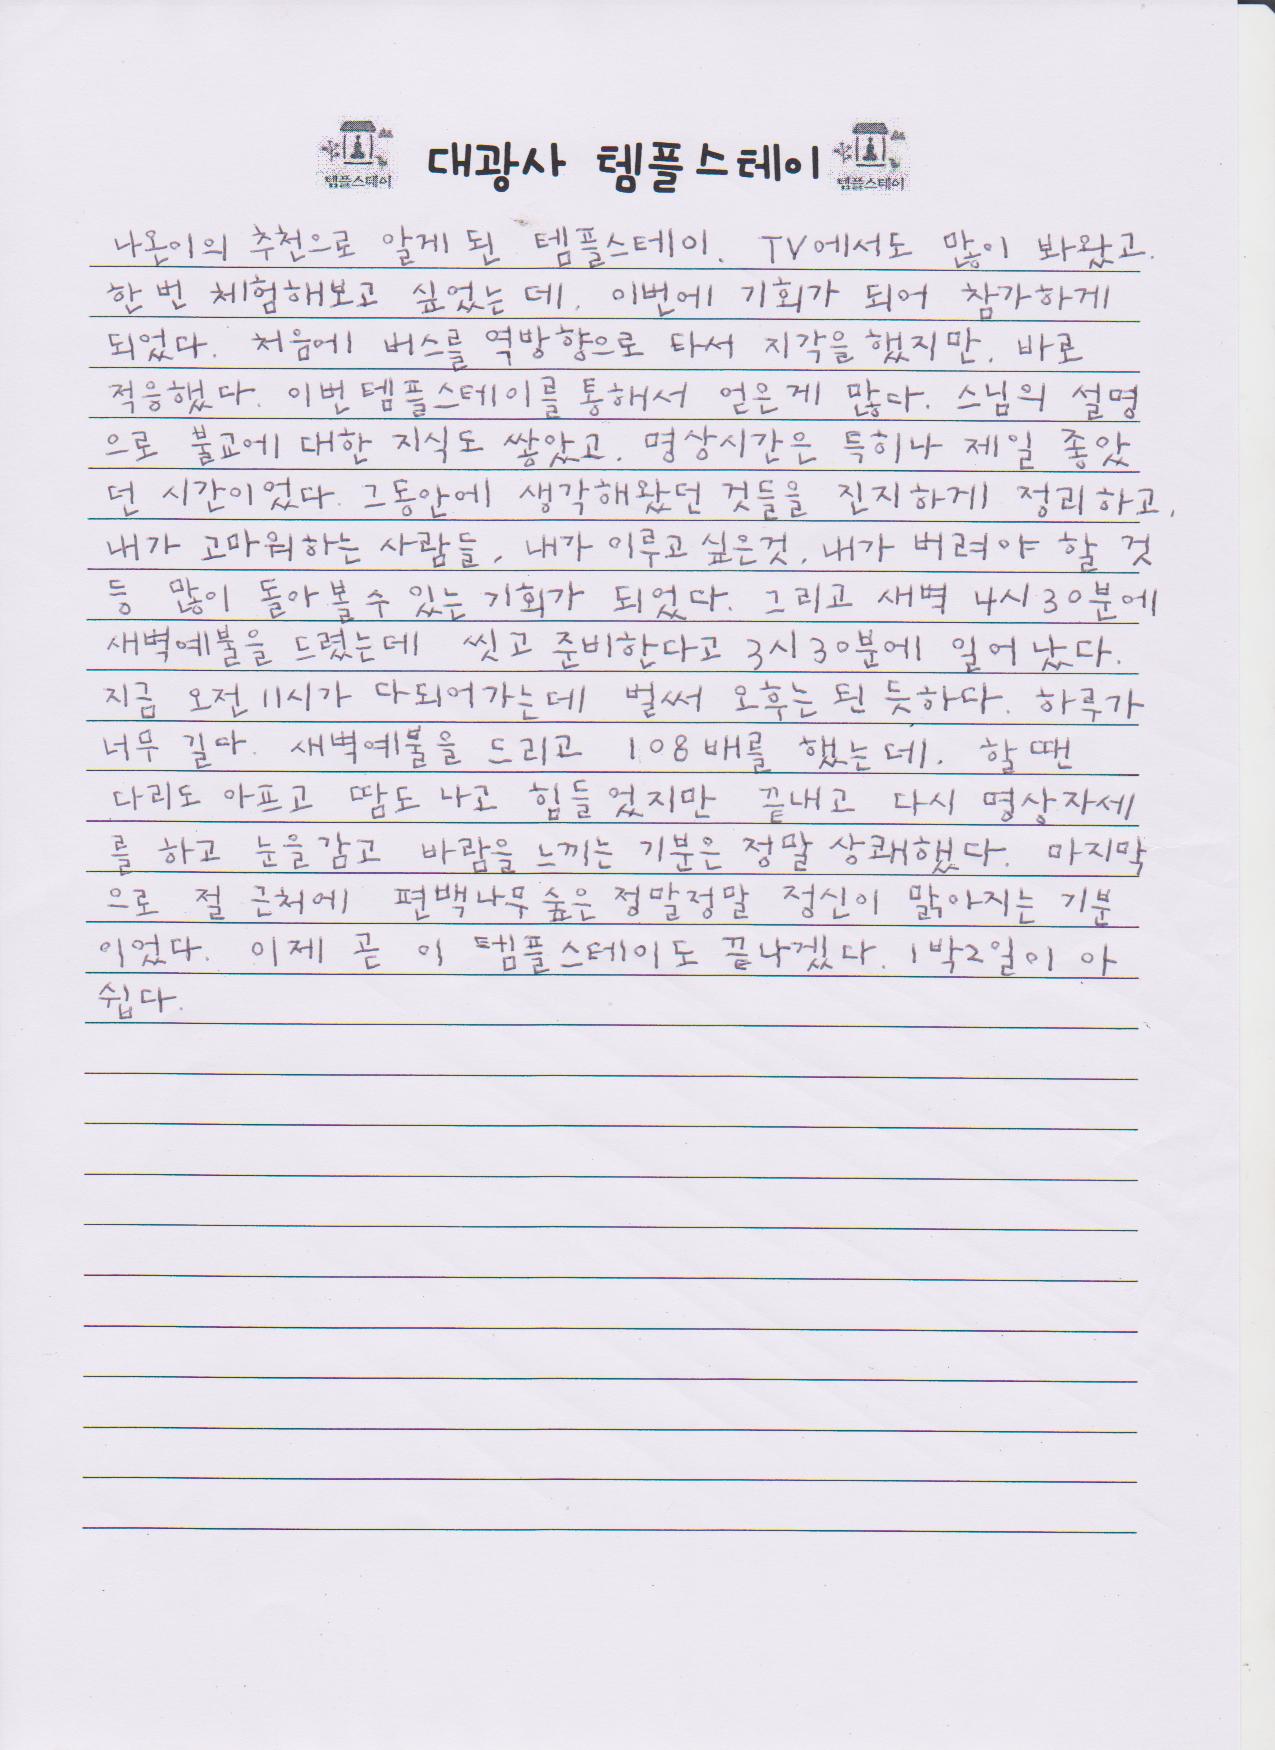 대광사 템플스테이
템플스테이 템플스테이
나온이의 추천으로 알게 된 템플스테이. TV에서도 많이 봐왔고.
한 번 체험해보고 싶었는데, 이번에 기회가 되어 참가하게
되었다. 처음에 버스를 역방향으로 타서 지각을 했지만, 바로
적응했다. 이번템플스테이를 통해서 얻은게 많다. 스님의 설명
으로 불교에 대한 지식도 쌓았고, 명상시간은 특히나 제일 좋았
던 시간이었다. 그동안에 생각해왔던 것들을 진지하게 정리하고,
내가 고마워하는 사람들, 내가 이루고싶은것, 내가 버려야 할 것
등 많이 돌아볼수 있는 기회가 되었다. 그리고 새벽 4시30분에
새벽예불을 드렸는데 씻고 준비한다고 3시30분에 일어났다.
지금 오전 11시가 다되어가는데 벌써 오후는 된 듯하다. 하루가
너무 길다. 새벽예불을 드리고 108배를 했는데, 할 땐
다리도 아프고 땀도 나고 힘들었지만 끝내고 다시 명상자세
를 하고 눈을감고 바람을 느끼는 기분은 정말 상쾌했다. 마지막
으로 절 근처에 편백나무숲은 정말정말 정신이 맑아지는 기분
이었다. 이제 곧 이 템플스테이도 끝나겠다. 1박2일이 아
쉽다.